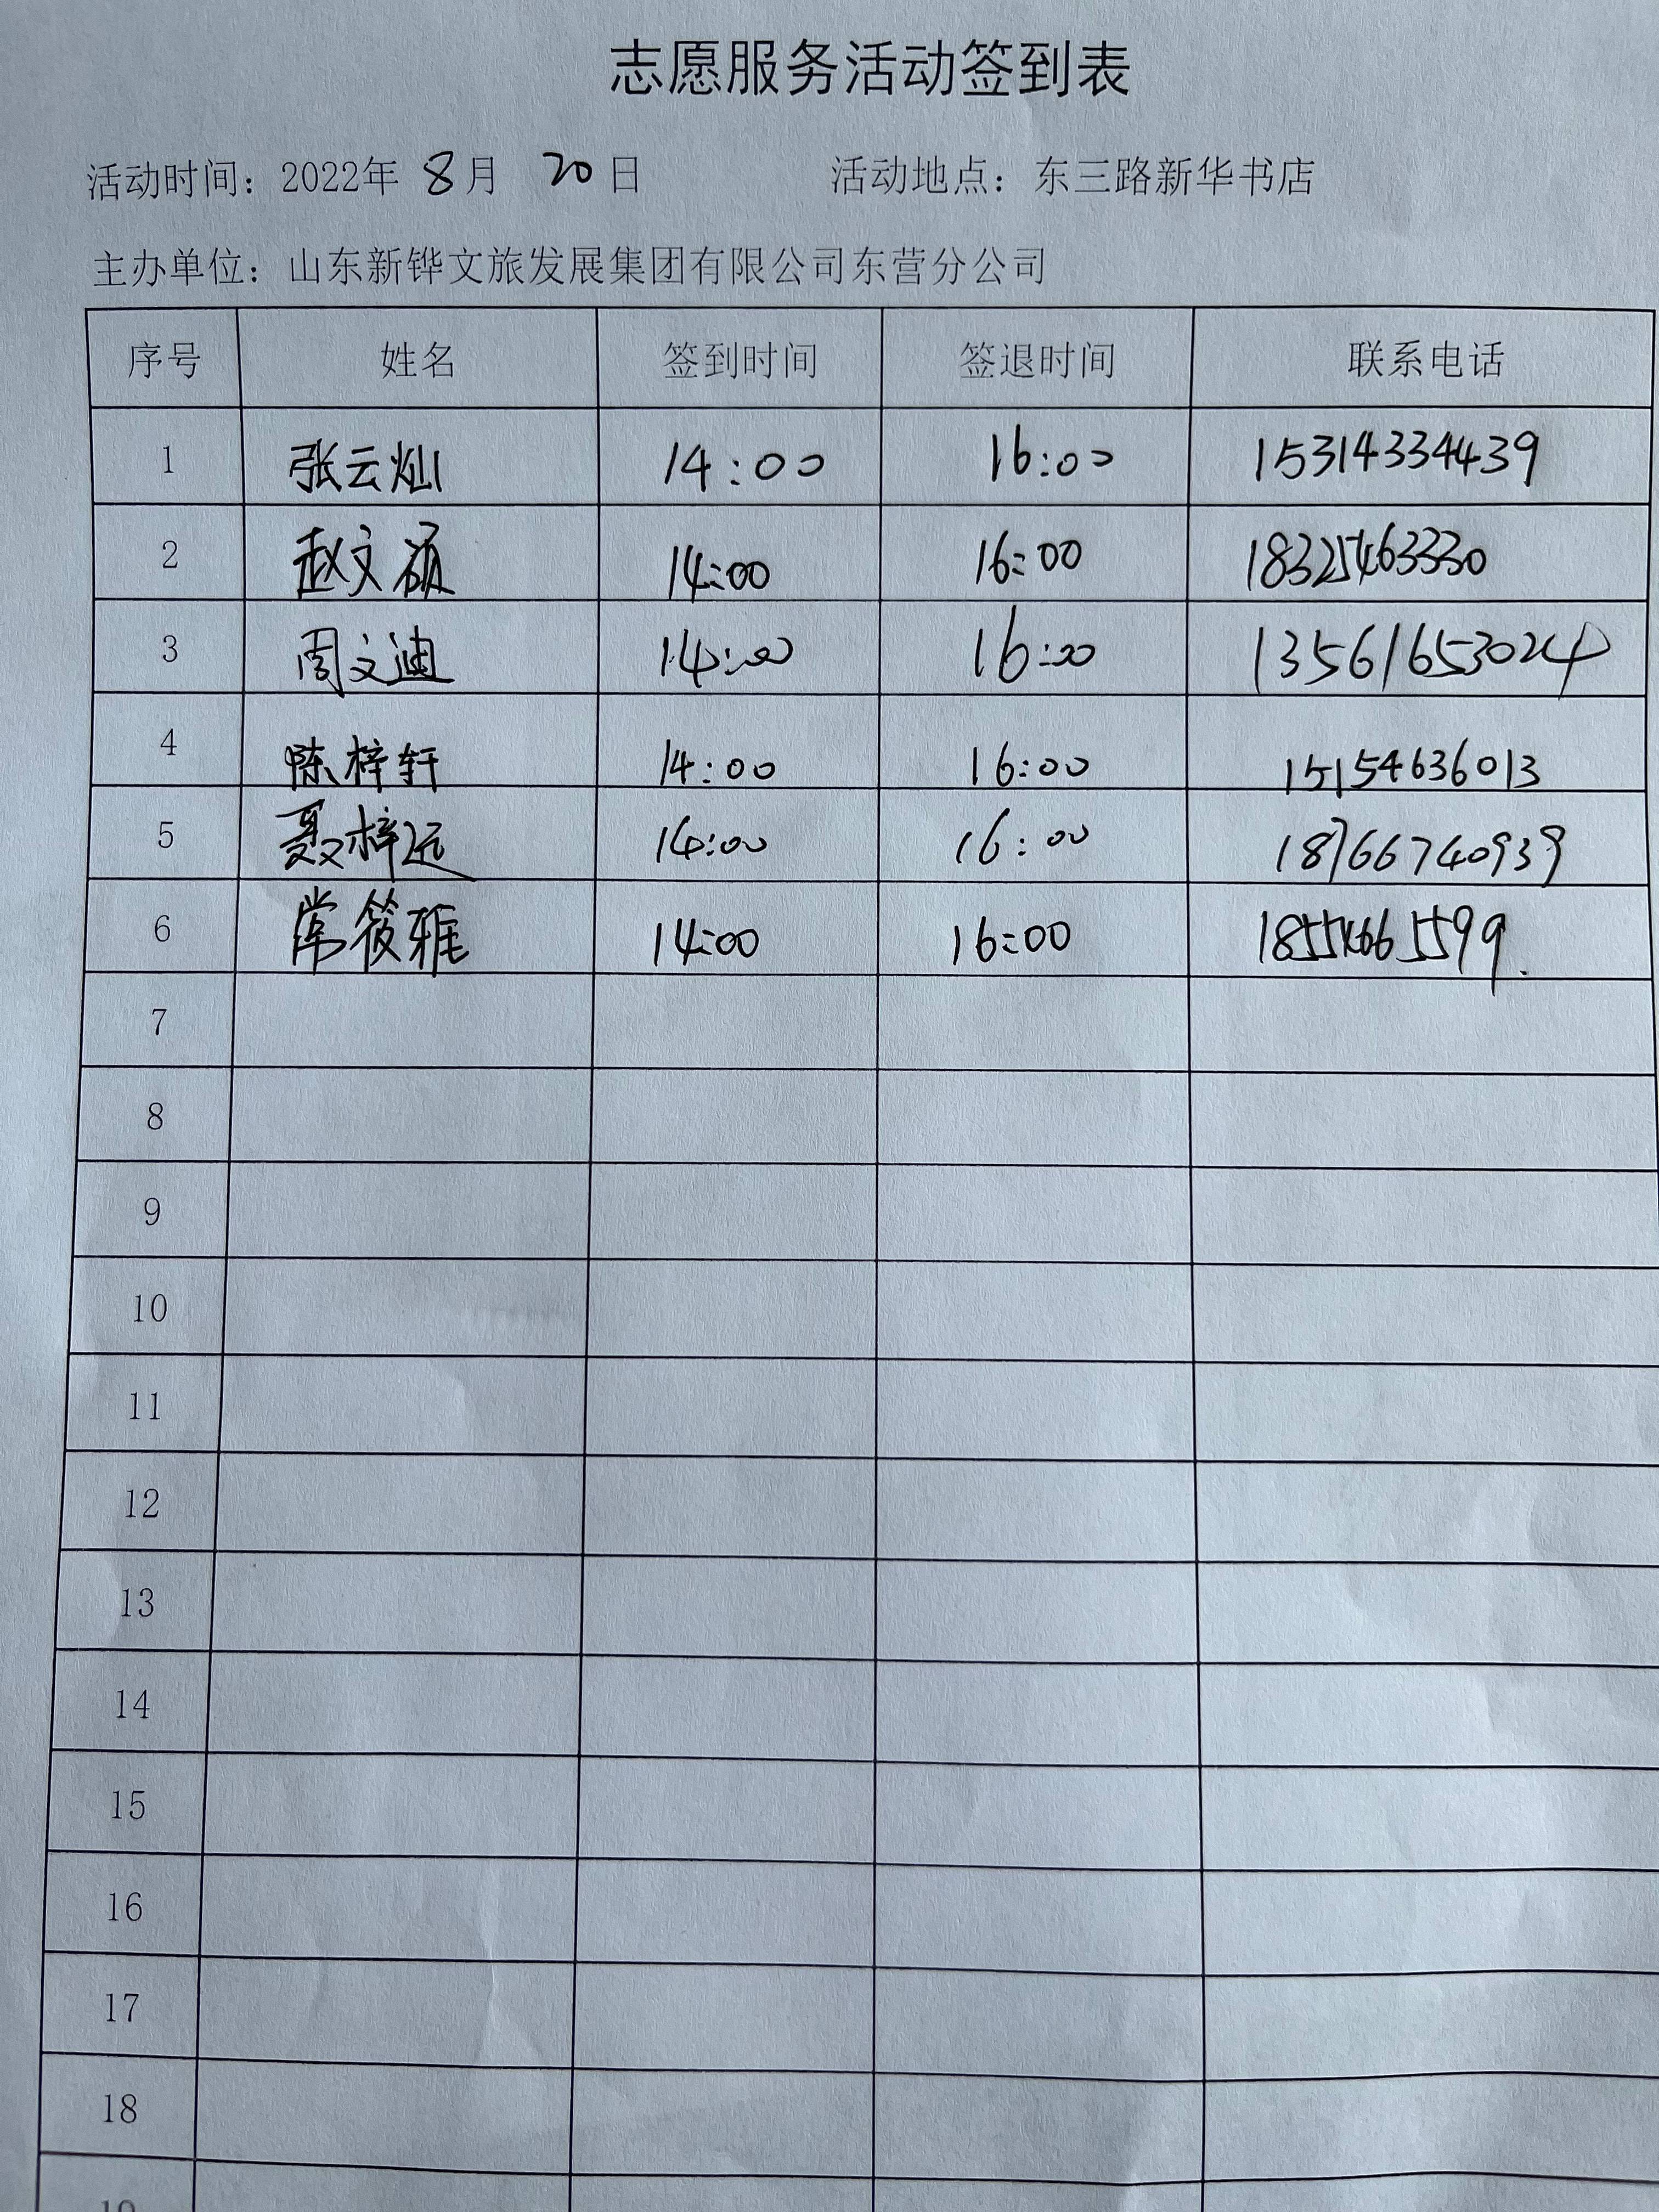 志愿服务活动签到表
活动时间：2022年 8月 20日 活动地点：东三路新华书店
主办单位：山东新铧文旅发展集团有限公司东营分公司
序号 姓名 签到时间 签退时间 联系电话
1 张云灿 14:00 16:00 15314334439
2 赵文硕 14:00 16:00 18325463330
3 周文迪 14:00 16:00 13561653024
4 陈梓轩 14:00 16:00 15154636013
5 聂梓远 14:00 16:00 18766740939
6 常筱雅 14:00 16:00 18554665599.
7
8
9
10
11
12
13
14
15
16
17
18
19